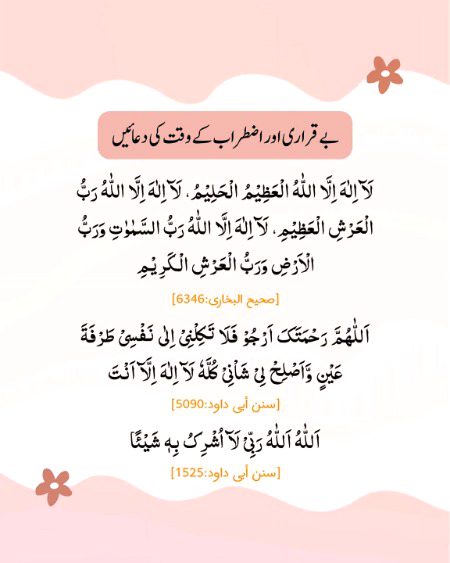 بے قراری اور اضطراب کے وقت کی دعائیں
لَآ اِلٰهَ اِلَّا اللّٰهُ الْعَظِيْمُ الْحَلِيْمُ، لَآ اِلٰهَ اِلَّا اللّٰهُ رَبُّ
الْعَرْشِ الْعَظِيْمِ، لَآ اِلٰهَ اِلَّا اللّٰهُ رَبُّ السَّمٰوٰتِ وَرَبُّ
الْاَرْضِ وَرَبُّ الْعَرْشِ الْكَرِيْمِ
[صحیح البخاری:6346]
اَللّٰهُمَّ رَحْمَتَکَ اَرْجُوْ فَلَا تَكِلْنِیْ اِلٰی نَفْسِیْ طَرْفَةَ
عَيْنٍ وَّاَصْلِحْ لِیْ شَاْنِیْ كُلَّهٗ لَآ اِلٰهَ اِلَّآ اَنْتَ
[سنن أبی داود:5090]
اَللّٰهُ اَللّٰهُ رَبِّیْ لَآ اُشْرِکُ بِهٖ شَيْئًا
[سنن أبی داود:1525]